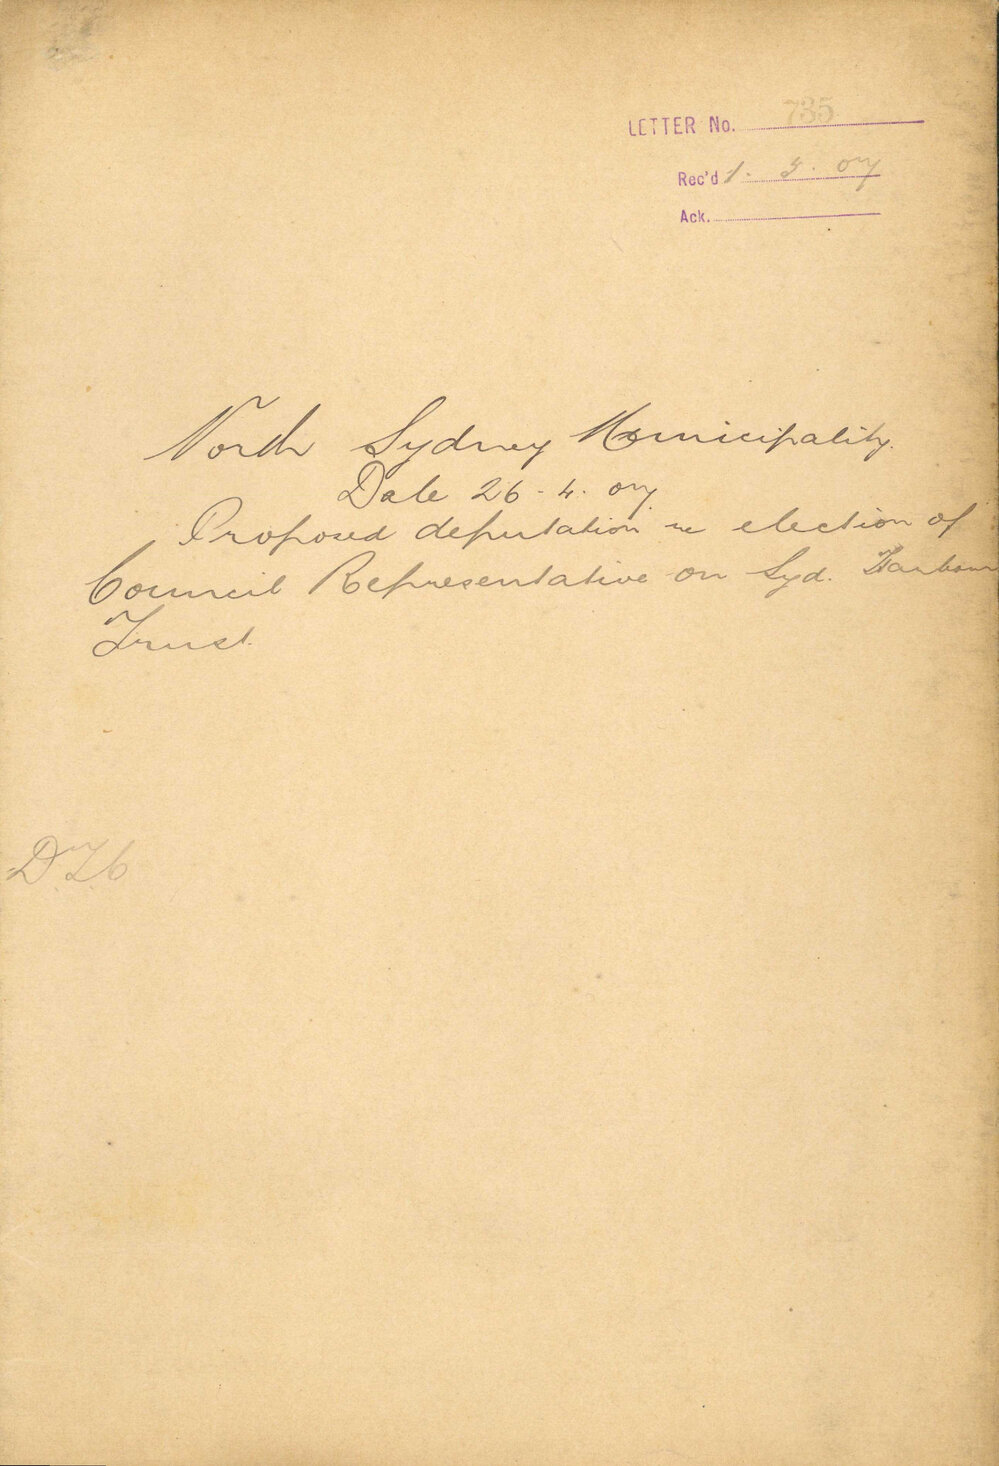 LETTER No. 735
Rec'd 1. 5. 07
Ack.
North Sydney Municipality.
Date 26-4-07
Proposed deputation re election of
Council Representative on Syd. Harbour
Trust.